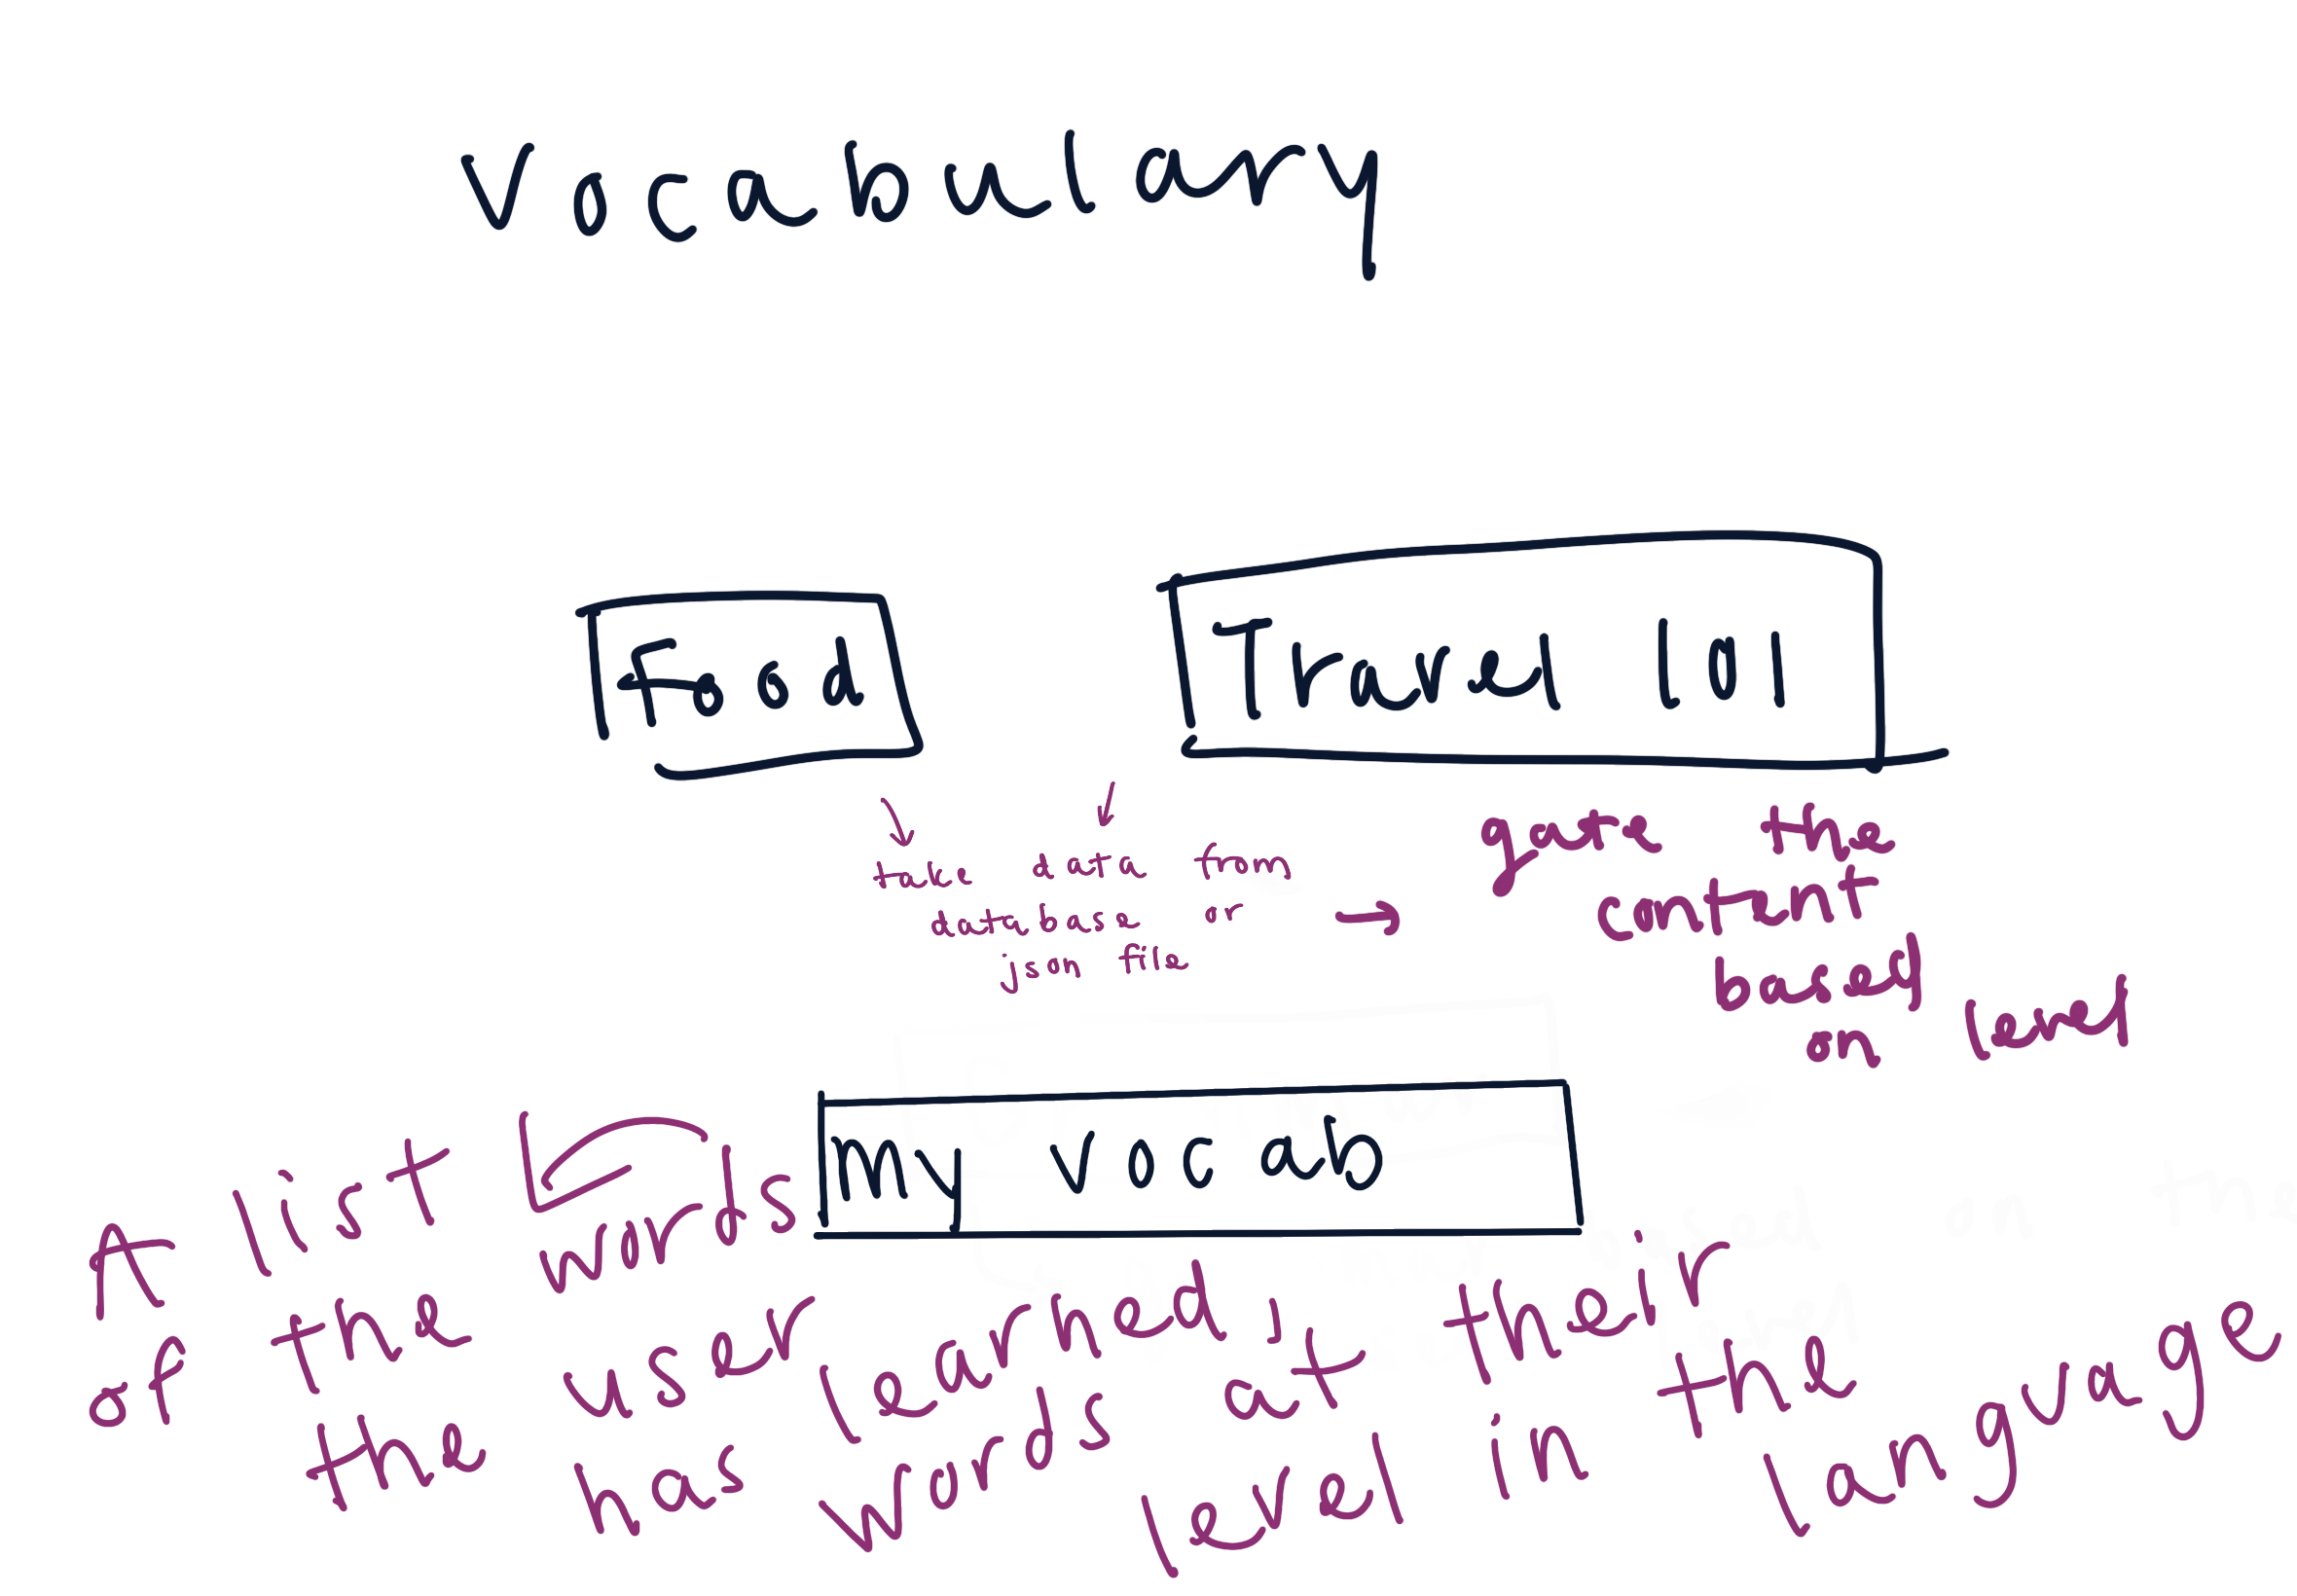 Vocabulary
Food
Travel 101
take data from
database or
json file
gate the
content
based
on level
My vocab
A list
of the words
the user
has learned,
words at their
level in the
language